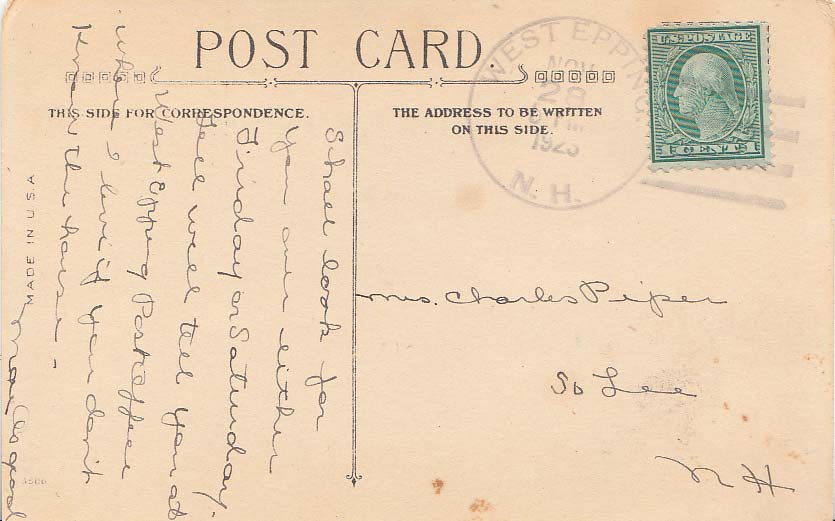 POST CARD.
THIS SIDE FOR CORRESPONDENCE.
THE ADDRESS TO BE WRITTEN
ON THIS SIDE.
WEST EPPING
NOV
28
1923
N. H.
U.S. POSTAGE
1 CENT 1
Shall look for
you over either
Friday or Saturday.
well tel you at
West Epping Post Office
where I live if you don't
know the house -
Osgood
Mrs. Charles Piper
So Lee
N H
MADE IN U.S.A